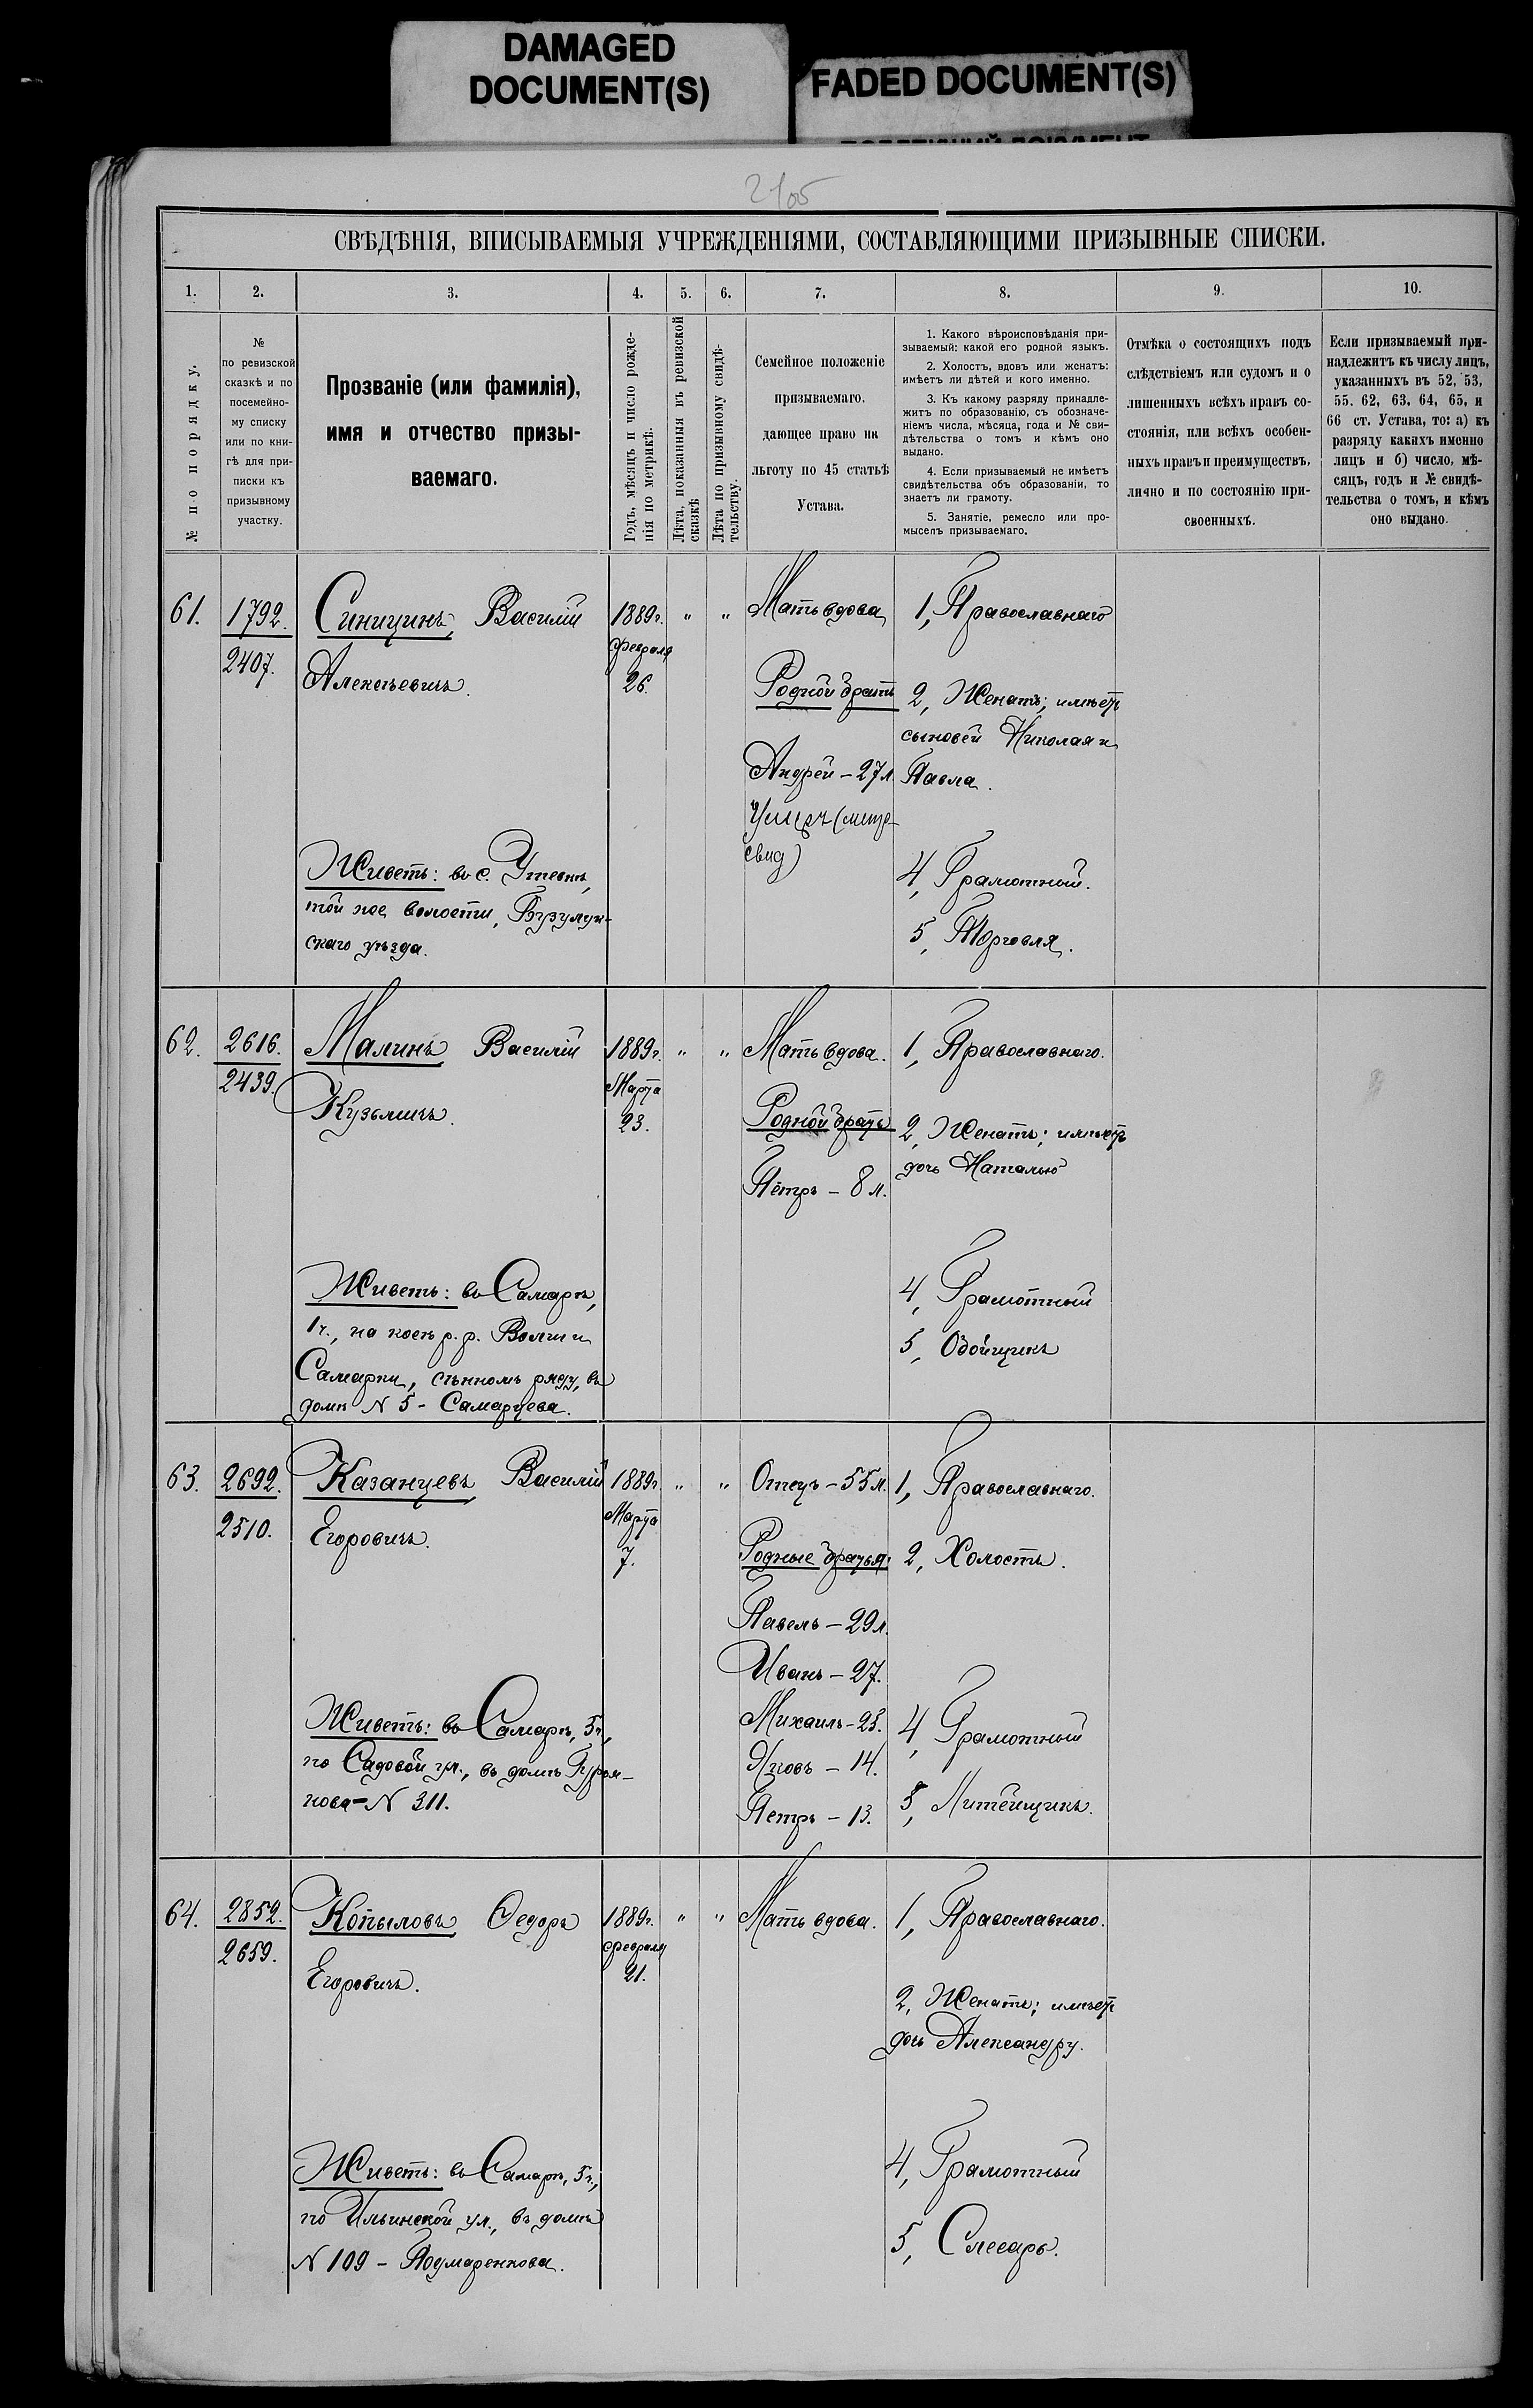 DAMAGED
DOCUMENT(S)
FADED DOCUMENT(S)
2105
СВѢДѢНІЯ, ВПИСЫВАЕМЫЯ УЧРЕЖДЕНІЯМИ, СОСТАВЛЯЮЩИМИ ПРИЗЫВНЫЕ СПИСКИ.
1. 2. 3. 4. 5. 6. 7. 8. 9. 10.
№ по порядку.
№
по ревизской
сказкѣ и по
посемейно-
му списку
или по кни-
гѣ для при-
писки къ
призывному
участку.
Прозваніе (или фамилія),
имя и отчество призы-
ваемаго.
Годъ, мѣсяцъ и число рожде-
нія по метрикѣ.
Лѣта, показанныя въ ревизской
сказкѣ
Лѣта по призывному свидѣ-
тельству.
Семейное положеніе
призываемаго,
дающее право на
льготу по 45 статьѣ
Устава.
1. Какого вѣроисповѣданія при-
зываемый: какой его родной языкъ.
2. Холостъ, вдовъ или женатъ:
имѣетъ ли дѣтей и кого именно.
3. Къ какому разряду принадле-
житъ по образованію, съ обозначе-
ніемъ числа, мѣсяца, года и № сви-
дѣтельства о томъ и кѣмъ оно
выдано.
4. Если призываемый не имѣетъ
свидѣтельства объ образованіи, то
знаетъ ли грамоту.
5. Занятіе, ремесло или про-
мыселъ призываемаго.
Отмѣка о состоящихъ подъ
слѣдствіемъ или судомъ и о
лишенныхъ всѣхъ правъ со-
стоянія, или всѣхъ особен-
ныхъ правъ и преимуществъ,
лично и по состоянію при-
своенныхъ.
Если призываемый при-
надлежитъ къ числу лицъ,
указанныхъ въ 52, 53,
55. 62, 63, 64, 65, и
66 ст. Устава, то: а) къ
разряду какихъ именно
лицъ и б) число, мѣ-
сяцъ, годъ и № свидѣ-
тельства о томъ, и кѣмъ
оно выдано.
61.
1792.
2407.
Синицинъ, Василій
Алексѣевичъ.
Живетъ: въ с. Утевкѣ,
той же волости, Бузулук-
скаго уѣзда.
1889г.
Февраля
26.
" "
Мать вдова
Родной братъ
Андрей - 27 л.
Умеръ (метр
свид)
1, Православнаго
2, Женатъ; имѣетъ
сыновей Николая и
Павла.
4, Грамотный.
5, Торговля.
62.
2616.
2439.
Малинъ Василій
Кузьмичъ.
Живетъ: въ Самарѣ,
1ч., на косѣ р.р. Волги и
Самарки, сѣнномъ ряду, въ
домѣ N 5 - Самарцева.
1889г.
Марта
23.
" "
Мать вдова.
Родной братъ
Петръ - 8 л.
1, Православнаго.
2, Женатъ; имѣетъ
дочь Наталью
4, Грамотный
5, Обойщикъ
63.
2692.
2510.
Казанцевъ Василій
Егоровичъ.
Живетъ: въ Самарѣ, 5ч.,
по Садовой ул., въ домѣ Гурья-
нова - N 311.
1889г.
Марта
7.
" "
Отецъ - 55 л.
Родные братья:
Павелъ - 29 л.
Иванъ - 27.
Михаилъ - 25.
Яковъ - 14.
Петръ - 13.
1, Православнаго.
2, Холостъ.
4, Грамотный
5, Литейщикъ.
64.
2852.
2659.
Копыловъ Федоръ
Егоровичъ.
Живетъ: въ Самарѣ, 5ч.,
по Ильинской ул., въ домѣ
N 109 - Подмаренкова.
1889г.
Февраля
21.
" "
Мать вдова.
1, Православнаго.
2, Женатъ; имѣетъ
дочь Александру.
4, Грамотный
5, Слесарь.